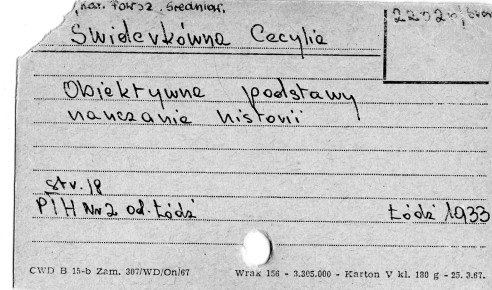 Kat. Powsz. Średniow.
2232
Świderkówna Cecylia
Obiektywne podstawy
nauczanie historii
str. 18
PIH Nr 2 od. Łódź Łódź 1933
CWD B 15-b Zam. 307/WD/On/67 Wrak 156 - 3.305.000 - Karton V kl. 180 g - 25.3.67.